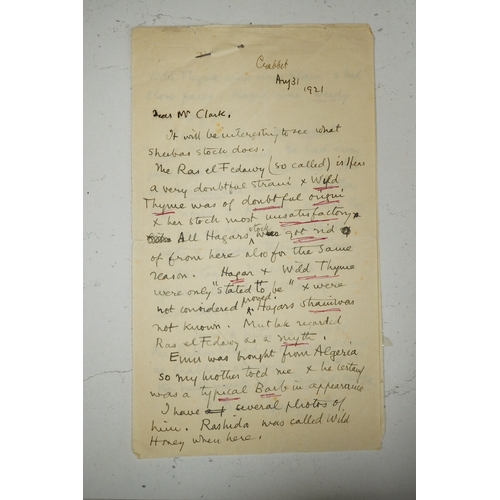 Crabbet
Aug 31
1921
Dear Mr Clark.
It will be interesting to see what
Sheibas stock does.
The Ras el Fedawy (so called) is
a very doubtful strain × Wild
Thyme was of doubtful origin
× her stock most unsatisfactory ×
All Hagars stock was got rid
of from here also for the same
reason. Hagar × Wild Thyme
were only "stated to be" × were
not considered proved. Hagars strain was
not known. Mutlak regarded
Ras el Fedawy as a myth.
Emir was bought from Algeria
so my mother told me × he certainly
was a typical Barb in appearance
I have several photos of
him. Rashida was called Wild
Honey when here.